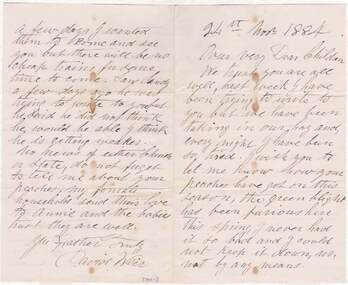 24st Novr 1884.
Dear very Dear Children
We hope you are all
well, last week I have
been trying to write to
you but we have been
taking in our hay and
every night I have been
so tired. I wish you to
let me know how your
peaches have got on this
season, the green blight
has been furious here
this spring I never had
it so bad and I could
not keep it down, no,
not by any means.
a few days I wanted
them to come and see
you but there will be no
cheap trains for some
time to come.
a few days ago he was
trying to write to you but
he said he did not think
he would be able I think
he is getting weaker.
No news of either
of late, do not forget
to tell me about your
peaches, my female
household send their love
to Annie and the babies
trust they are well.
Yr Father Truly
David Weir